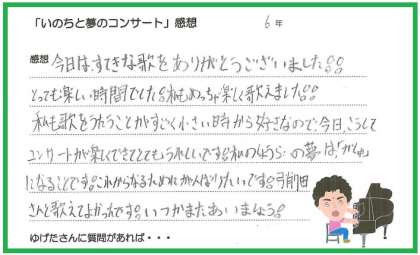 「いのちと夢のコンサート」感想 6年
感想 今日は、すてきな歌をありがとうございました!!
とっても楽しい時間でした!私もめっちゃ楽しく歌えました!!
私も歌をうたうことがすごく小さい時から好きなので、今日、こうして
コンサートが楽しくできてとてもうれしいです!私のしょうらいの夢は、「かしゅ」
になることです!これからなるためにがんばりたいです!弓削田
さんと歌えてよかったです!いつかまたあいましょう!
ゆげたさんに質問があれば・・・